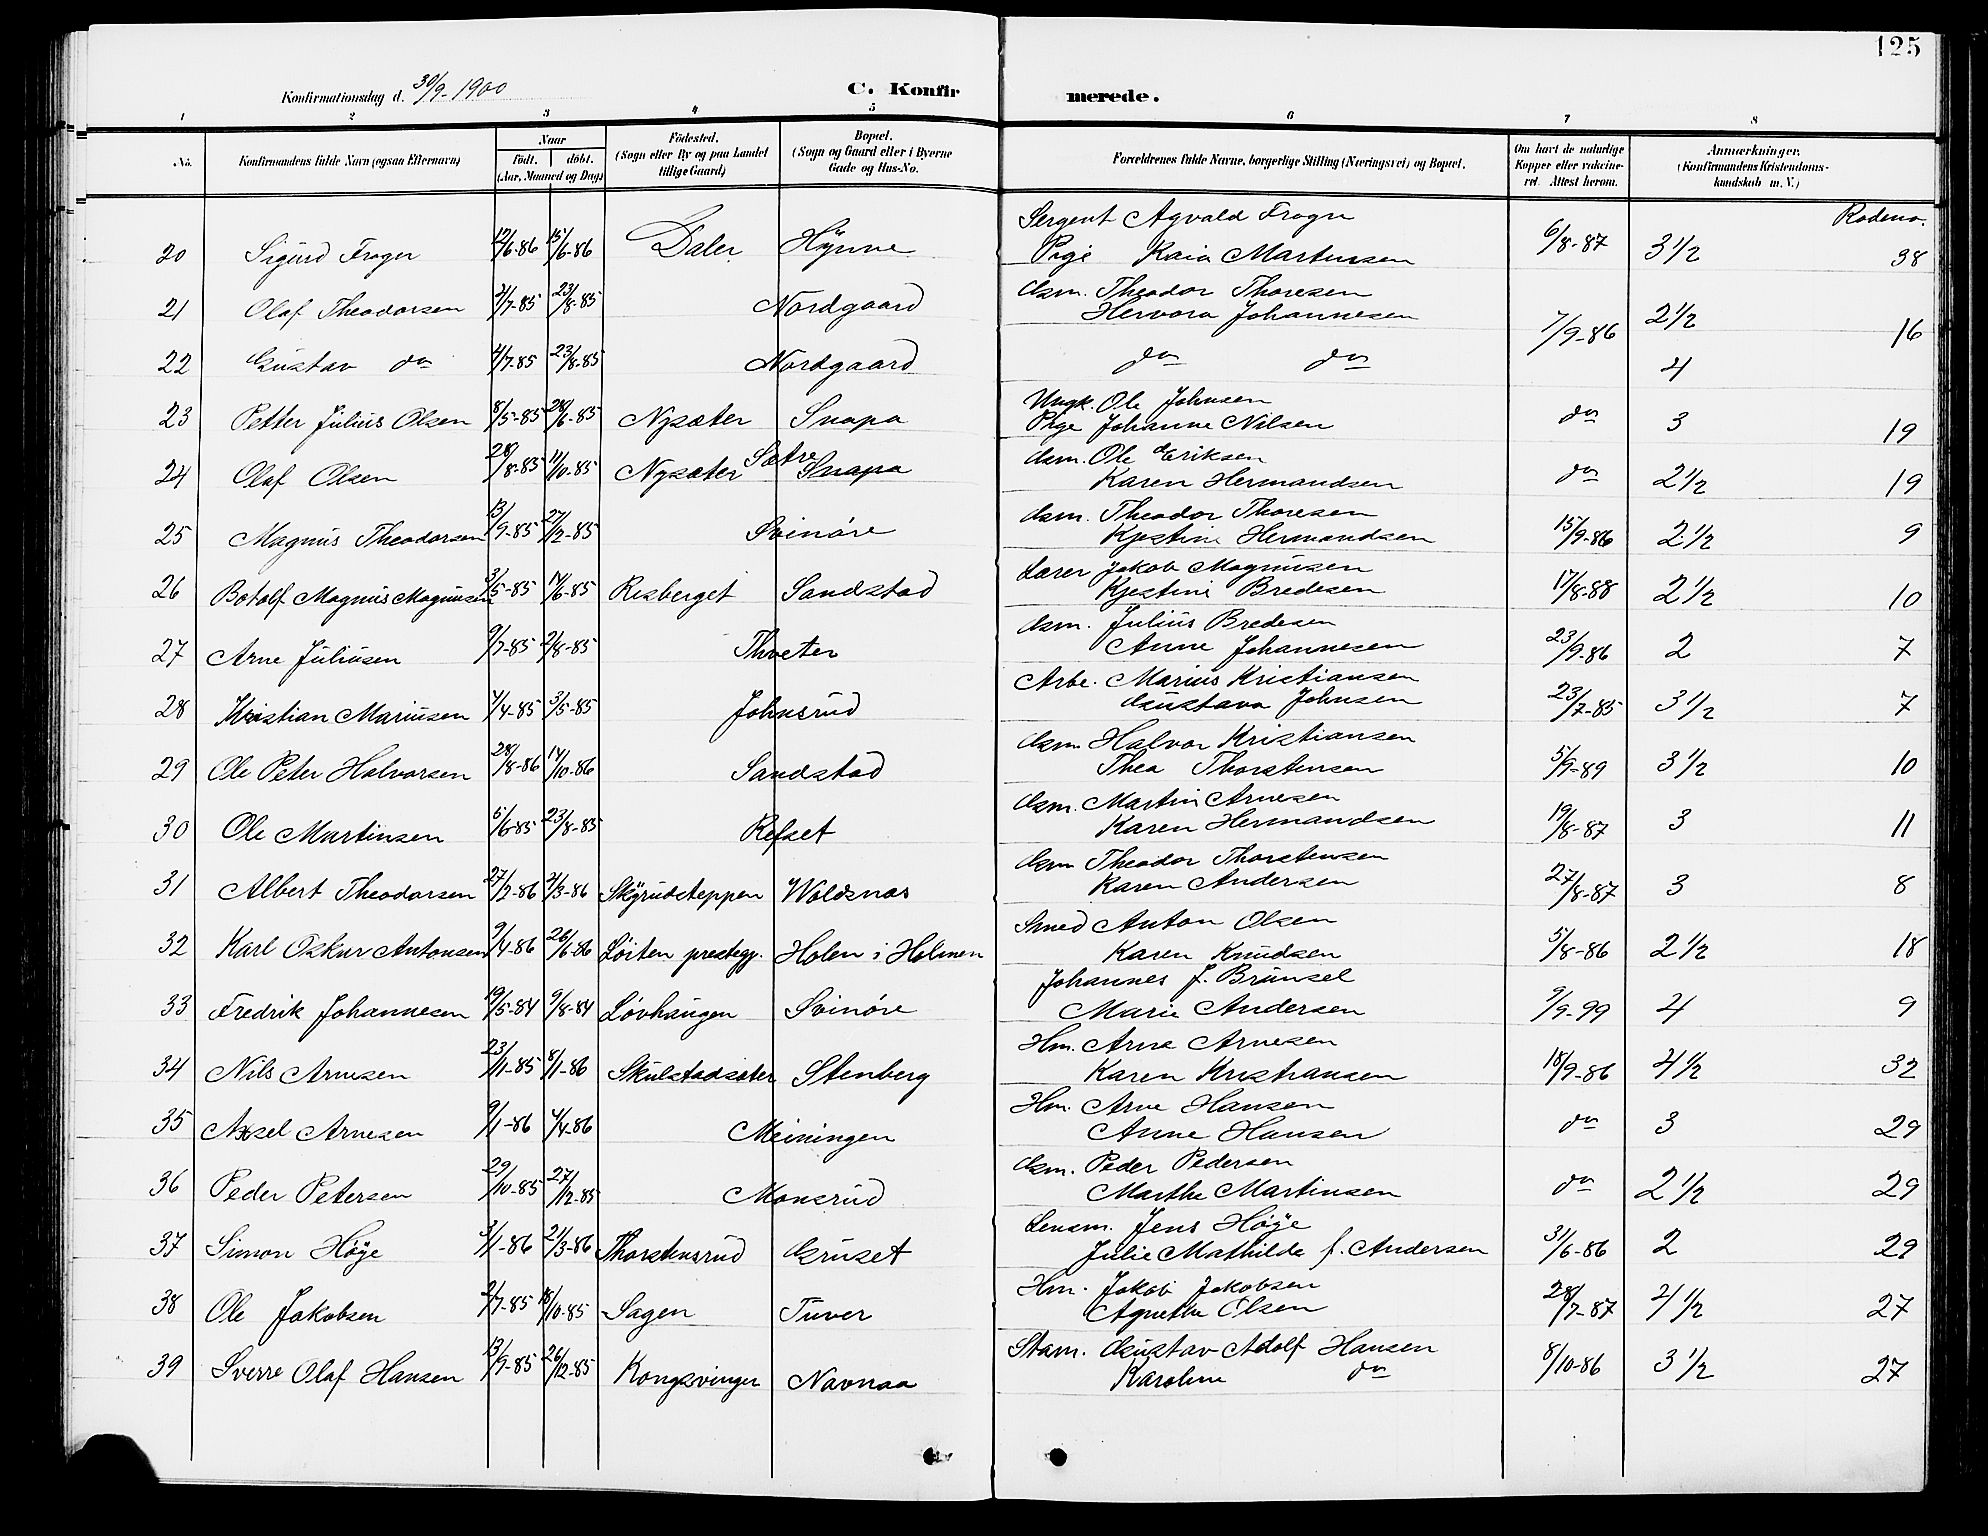 125
Konfirmationsdag d. 30/9-1900
C. Konfirmerede.
1 2 3 4 5 6 7 8
No. Konfirmandens fulde Navn (ogsaa Efternavn) Naar født. døbt. (Aar, Maaned og Dag) Fødested. (Sogn eller By og paa Landet tillige Gaard) Bopæl. (Sogn og Gaard eller i Byerne Gade og Hus-No. Forældrenes fulde Navne, borgerlige Stilling (Næringsvei) og Bopæl. Om havt de naturlige Kopper eller vakcineret. Attest herom. Anmærkninger, (Konfirmandens Kristendomskundskab m. V.)
Rodeno.
Sergent Agvald Frogn
20 Sigurd Froger 12/6-86 15/6-86 Daler Hynne Pige Kaia Martinsen 6/8-87 3 1/2 38
Gsm. Theodor Thoresen
21 Olaf Theodorsen 4/7-85 23/8-85 Nordgaard Hervora Johannesen 7/9-86 2 1/2 16
22 Gustav do 4/7-85 23/8-85 Nordgaard do do 4
Ungk. Ole Johnsen
23 Petter Julius Olsen 8/5-85 28/6-85 Nysæter Snapa Pige Johanne Nilsen do 3 19
Gsm. Ole Eriksen
24 Olaf Olsen 28/8-85 11/10-85 Nysæter Sætre Snapa Karen Hermandsen do 2 1/2 19
Gsm. Theodor Thoresen
25 Magnus Theodorsen 13/9-85 27/12-85 Svinöre Kjestine Hermandsen 15/9-86 2 1/2 9
Lærer Jakob Magnusen
26 Botolf Magnus Magnusen 3/5-85 14/6-85 Risberget Sandstad Kjestine Bredesen 17/8-88 2 1/2 10
Gsm. Julius Bredesen
27 Arne Juliusen 9/7-85 2/8-85 Thveter Anne Johannesen 23/9-86 2 7
Arbe. Marius Kristiansen
28 Kristian Mariusen 4/4-85 3/5-85 Johnsrud Gustava Johnsen 23/7-85 3 1/2 7
Gsm Halvor Kristiansen
29 Ole Peter Halvorsen 28/8-86 14/10-86 Sandstad Thea Thorstensen 5/9-89 3 1/2 10
Gsm. Martin Arnesen
30 Ole Martinsen 5/6-85 23/8-85 Refset Karen Hermandsen 19/8-87 3 11
Gsm Theodor Thorstensen
31 Albert Theodorsen 27/2-86 21/3-86 Skyrudsteppen Woldsnæs Karen Andersen 27/8-87 3 8
Smed Anton Olsen
32 Karl Oskar Antonsen 9/4-86 26/6-86 Löiten prestegj. Holen i Holmen Karen Knudsen 5/8-86 2 1/2 18
Johannes J. Brunsel
33 Fredrik Johannesen 19/5-84 9/8-84 Lövhaugen Svinöre Marie Andersen 9/9-99 4 9
Hm. Arne Arnesen
34 Nils Arnesen 23/11-85 8/1-86 Skulstadsæter Stenberg Karen Kristiansen 18/9-86 2 1/2 32
Hm. Arve Hansen
35 Aksel Arnesen 9/1-86 4/4-86 Meiningen Anne Hansen do 3 29
Gsm. Peder Pedersen
36 Peder Petersen 29/10-85 27/12-85 Monsrud Marthe Martinsen do 2 1/2 29
Lensm. Jens Høye
37 Simon Høye 3/1-86 21/3-86 Thorstensrud Gruset Julie Mathilde f. Andersen 31/6-86 2 29
Hm. Jakob Jakobsen
38 Ole Jakobsen 2/7-85 18/10-85 Sagen Tuver Agnethe Olsen 28/7-87 2 1/2 27
Stasm. Gustav Adolf Hansen
39 Sverre Olaf Hansen 13/9-85 26/12-85 Kongsvinger Navnaa Karoline do 8/10-86 3 1/2 27